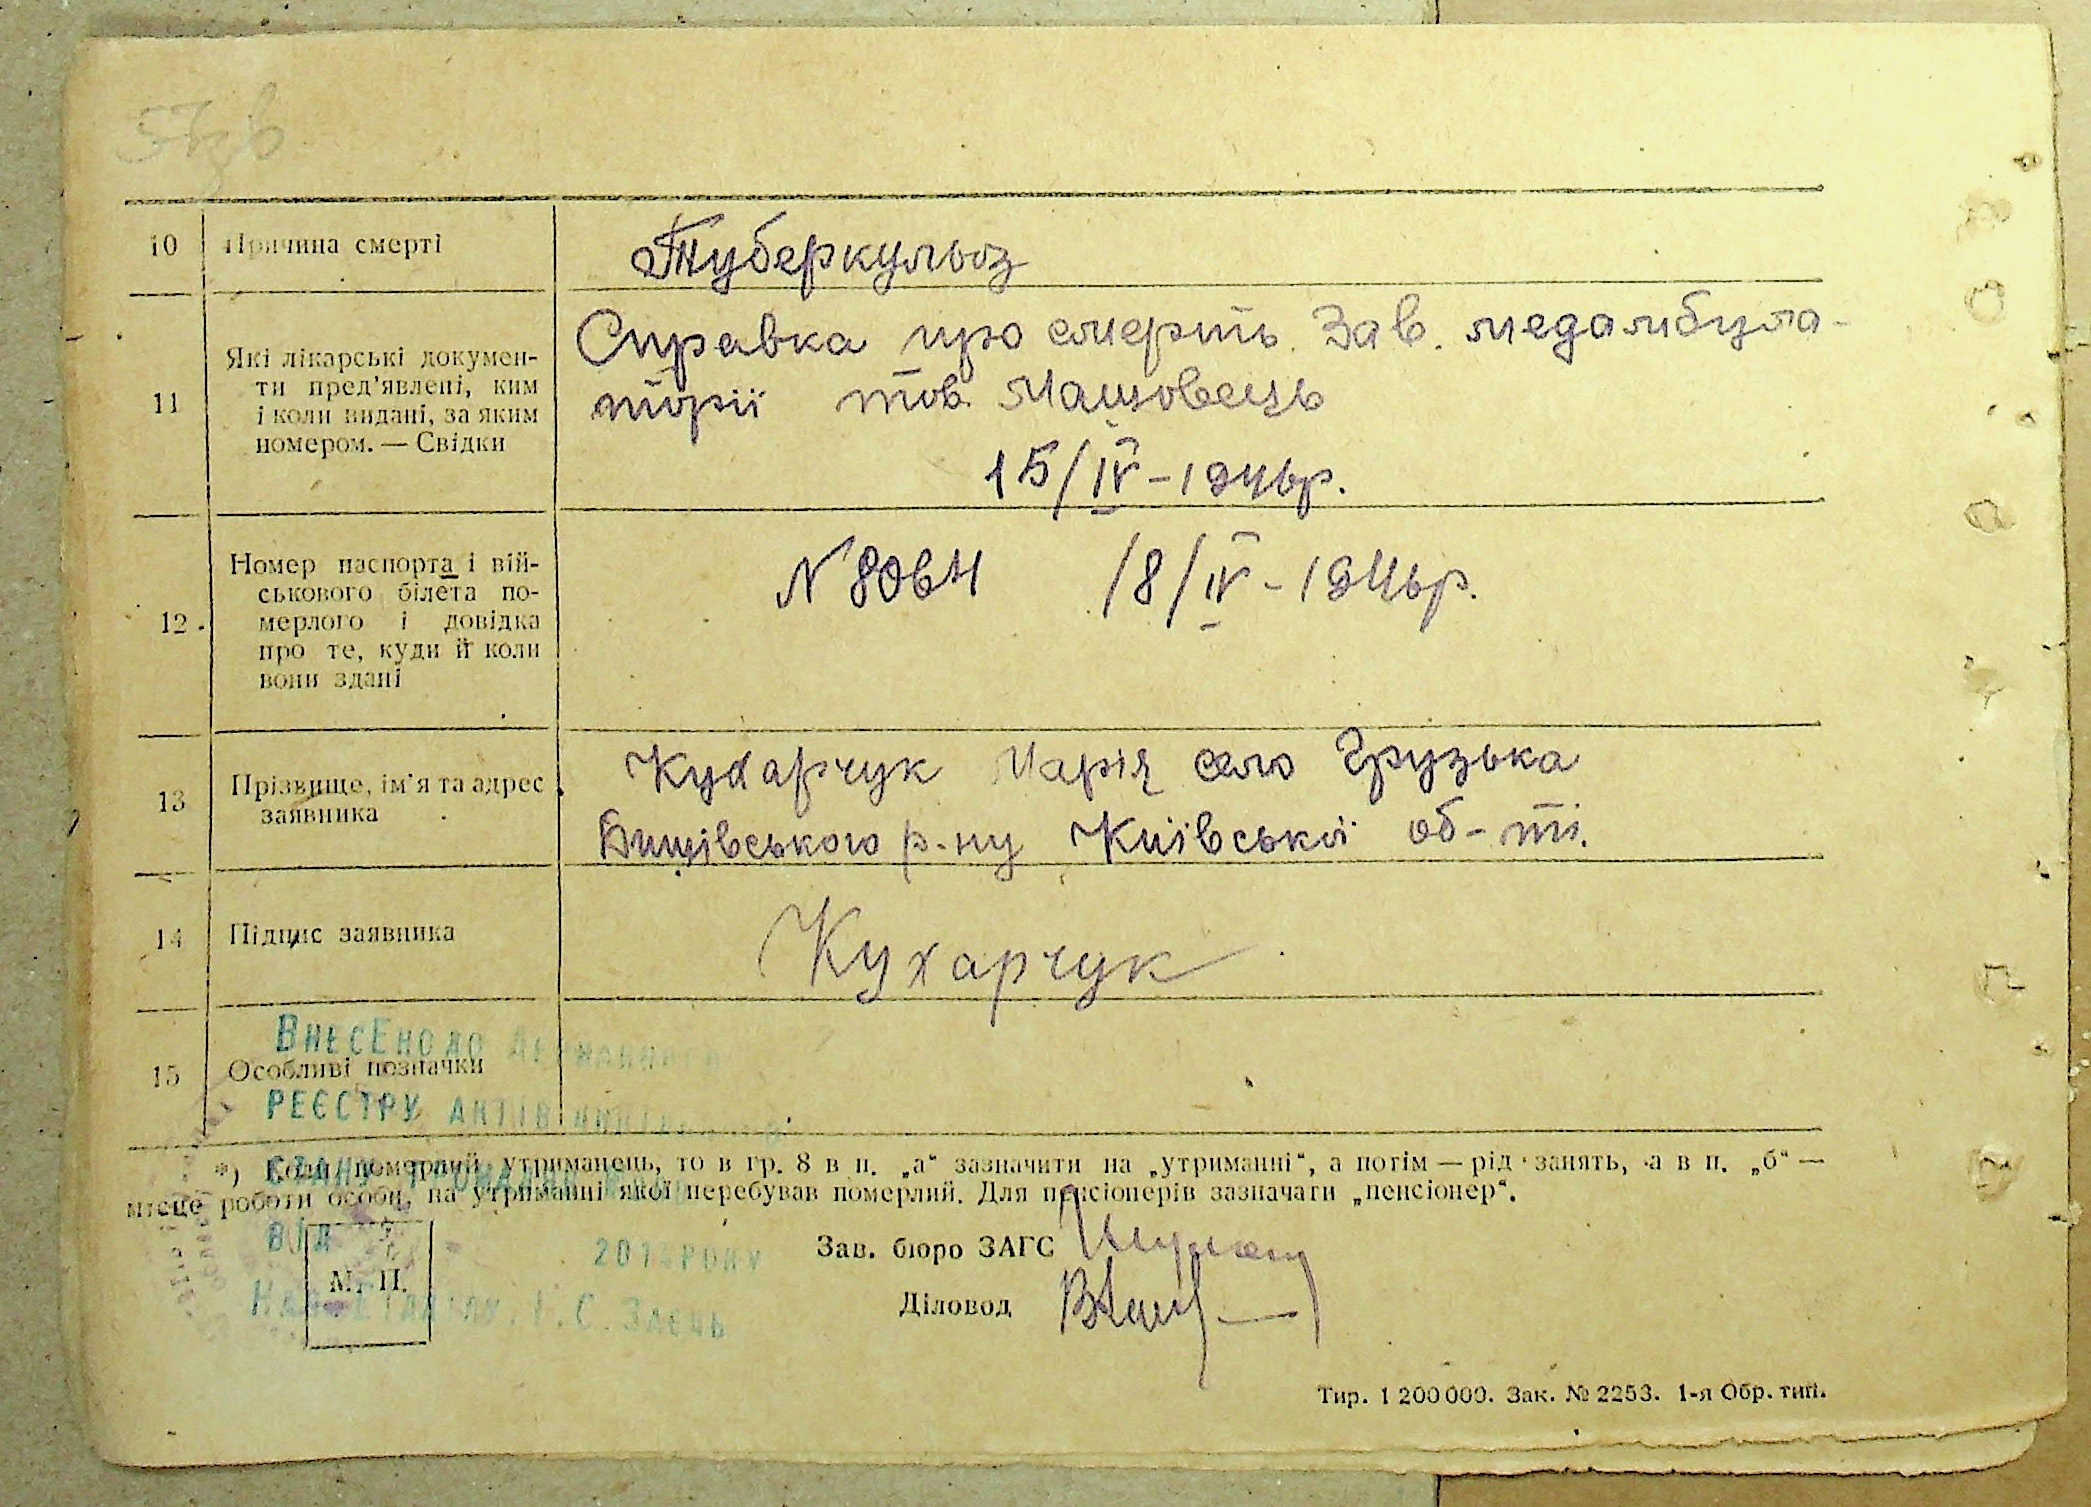 10 Причина смерті Туберкульоз
11 Які лікарські докумен-
ти пред'явлені, ким
і коли видані, за яким
номером. — Свідки
Справка про смерть. Зав. медамбула-
торії тов. Машовець
15/IV-1946р.
12 Номер паспорта і вій-
ськового білета по-
мерлого і довідка
про те, куди й коли
вони здані
N 8064 18/IV-1946р.
13 Прізвище, ім'я та адрес
заявника
Кухарчук Марія село Грузька
Бишівського р-ну Київської об-ті.
14 Підпис заявника Кухарчук
15 Особливі позначки
Внесено до Державного
реєстру актів
стану громадян
від 201 року
С. Заєць
*) Коли померлий утриманець, то в гр. 8 в п. „а“ зазначити на „утриманні“, а потім — рід занять, а в п. „б“ —
місце роботи особи, на утриманні якої перебував померлий. Для пенсіонерів зазначати „пенсіонер“.
Зав. бюро ЗАГС
М. П.
Діловод
Тир. 1 200 000. Зак. № 2253. 1-я Обр. тип.